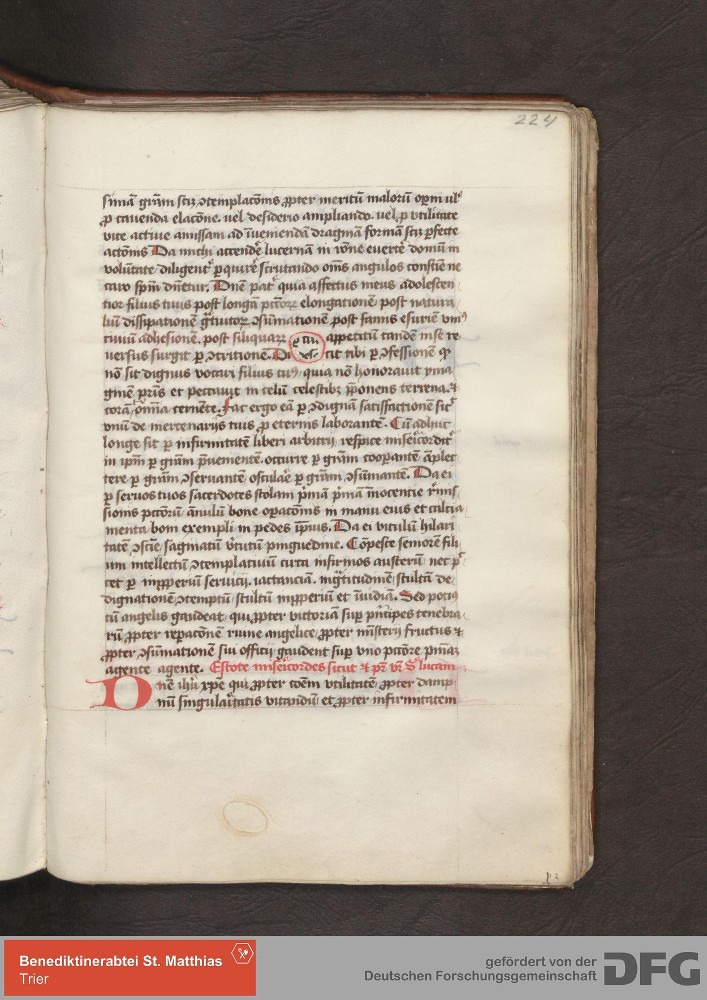 224
simā grām scz ↄtemplacōnis ꝓpter meritū malorū
ꝓ cauenda elacōne. uel desiderio ampliando. uel ꝓ vtilitate
vite actiue amissam ad īueniendā dragmā formā scz ꝑfecte
actōnis Da michi accendē lucernā in rōne euertē domū in
volūtate diligent ꝑquirē scrutando om̄s angulos consciē ne
caro spm̄ dn̄etur. Dn̄e pat quia affectus meus adolescen
tior filius tuus post longā pctōꝝ elongationē post natura
liū dissipationē ↄsūmationē post famis esuriē
adhesionē. post siliquaꝝ appetitū tandē in se re
uersus surgit ꝑ ↄtritionē. Di cit tibi ꝑ ↄfessionē
nō sit dignus vocari filius tuꝰ, quia nō honorauit yma
ginē pr̄is et peccauit in celū celestibꝫ p̄ponens terrena. ⁊
corā Fac ergo eā ꝑ ↄdignā satisfactionē sic
vnū de mercenarijs tuis ꝓ eternis laborantē. Cū adhuc
longe sit ꝑ infirmitatē liberi arbitrij respice
in ip̄m ꝑ grām p̄uenientē. occurre ꝑ grām coopantē āplec
tere ꝑ grām ↄseruantē osculaē ꝑ grām ↄsūmantē. Da ei
ꝑ seruos tuos sacerdotes stolam pͥmā pͥmā īnocencie
sionis pctōrū ānulū bone oꝑacōnis in manu eius et calcia
menta boni exempli in pedes ip̄ius. Da ei vitulū hilari
tatē saginatū pinguedine. Cōpesce seniorē fili
um intellectū ↄtemplatiuū circa infirmos austerū nec
cet ꝑ īnpperiū seruicij. iactanciā. stultū de
dignationē ↄtemptū stultū īnpperiū et īuidiā. Sed potiꝰ
cū angelis gaudeat, qui ꝓpter victoriā suꝑ pͥncipes tenebra
rū ꝓpter reꝑacōnē ruine angelice ꝓpter mīsterij fructus ⁊
ꝓpter ↄsūmationē sui officij gaudent suꝑ vno pctōre
agente agente. Estote misericordes sicut ⁊ pr̄ vr̄ Sꝰ lucam
Dn̄e ihū xp̄e qui ꝓpter cōem vtilitatē ꝓpter damp
nū singularitatis vitandū et ꝓpter infirmitatem
Benediktinerabtei St. Matthias
Trier
gefördert von der
Deutschen Forschungsgemeinschaft
DFG